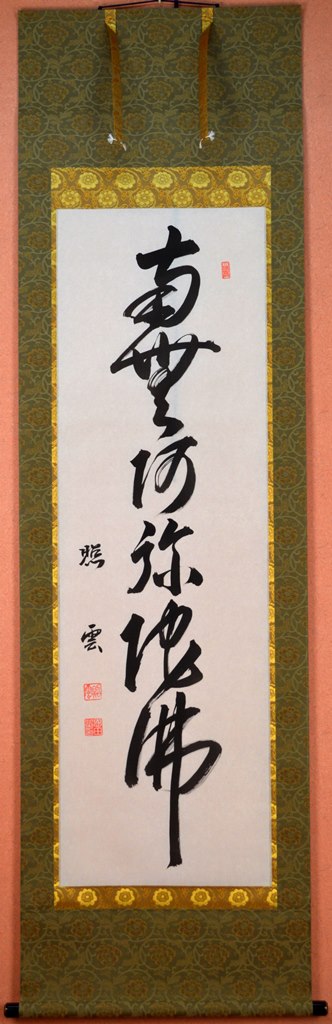 南無阿弥陀佛
照雲